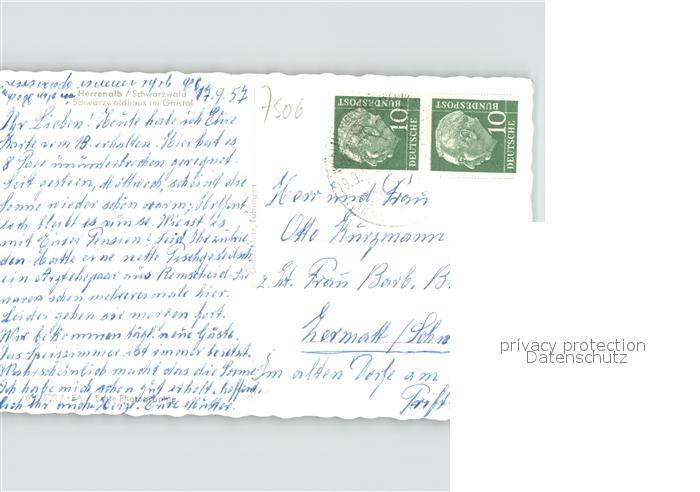 Herrenalb / Schwarzwald
Schwarzwaldhaus im Gaistal
17.9.57
Ihr Lieben! Heute habe ich Eure
Karte vom 13. erhalten. Hier hat es
8 Tage ununterbrochen geregnet.
Seit gestern, Mittwoch, scheint die
Sonne wieder schön warm; Hoffent-
lich bleibt es nun so. Wie ist es
mit Eurer Pension? Seid Ihr zufrie-
den. Hatte eine nette Tischgesellsch.
ein Arztehepaar aus Remscheid. Sie
waren schon mehreremale hier.
Leider gehen sie morgen fort.
Wir bekommen tägl. neue Gäste.
Das Speiszimmer ist immer besetzt.
Wahrscheinlich macht das die Sonne
Ich habe mich schon gut erholt, hoffent-
lich Ihr auch. Herzl. Eure Mutter.
Echte Photographie
7506
10
DEUTSCHE
BUNDESPOST
10
DEUTSCHE
BUNDESPOST
Herr und Frau
Otto Kurzmann
z. Zt. Frau Barb. B
Zermatt / Schw
im alten Dorfe am
Trift
privacy protection
Datenschutz